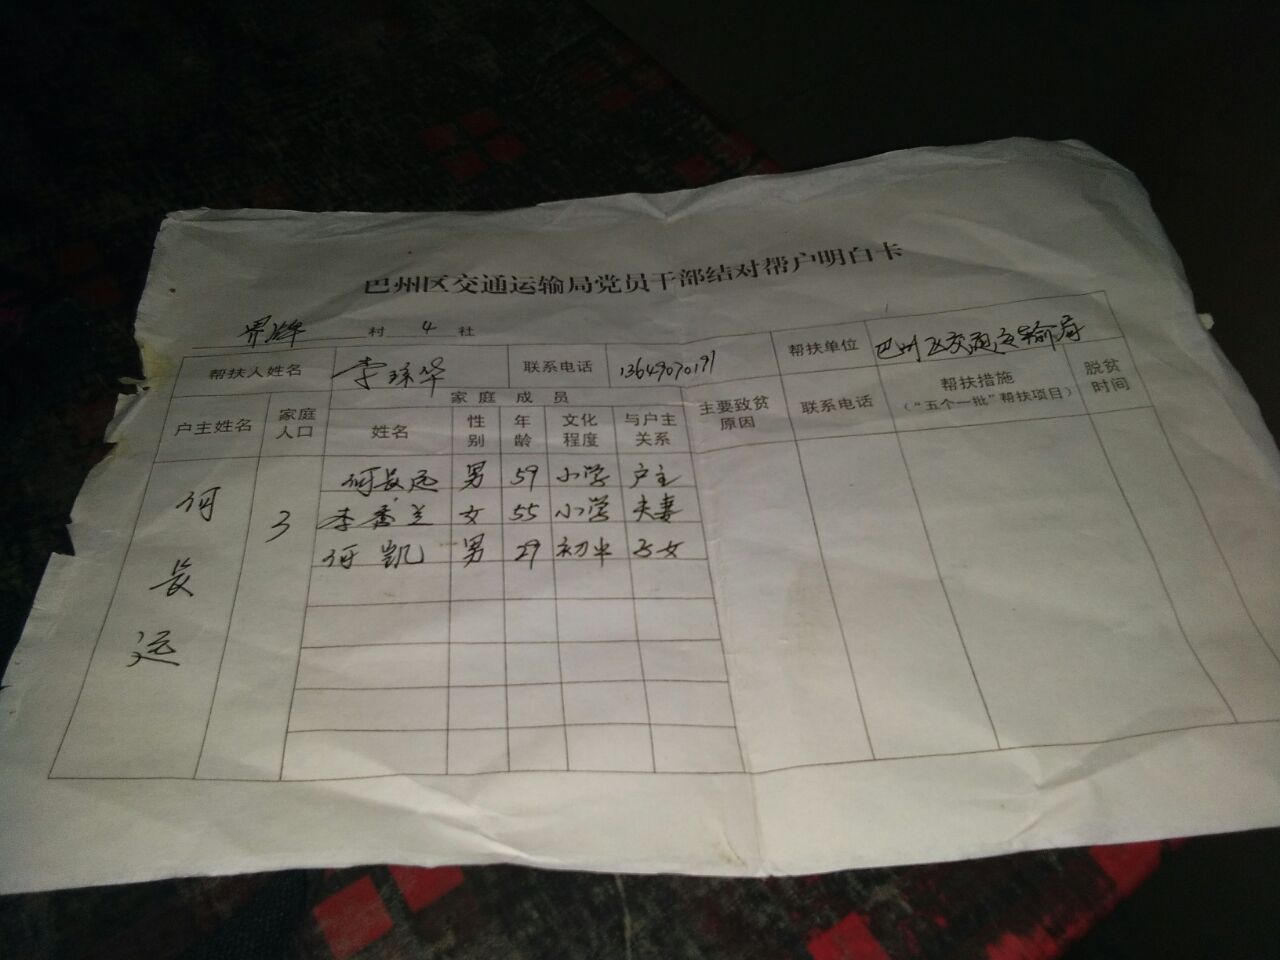 巴州区交通运输局党员干部结对帮户明白卡
界牌 村 4 社
帮扶人姓名 李 华 联系电话 13649070191 帮扶单位 巴州区交通运输局
户主姓名 家庭人口 家庭成员 主要致贫原因 联系电话 帮扶措施（“五个一批”帮扶项目） 脱贫时间
姓名 性别 年龄 文化程度 与户主关系
何长远 3 何长远 男 59 小学 户主
李香兰 女 55 小学 夫妻
何凯 男 29 初中 子女